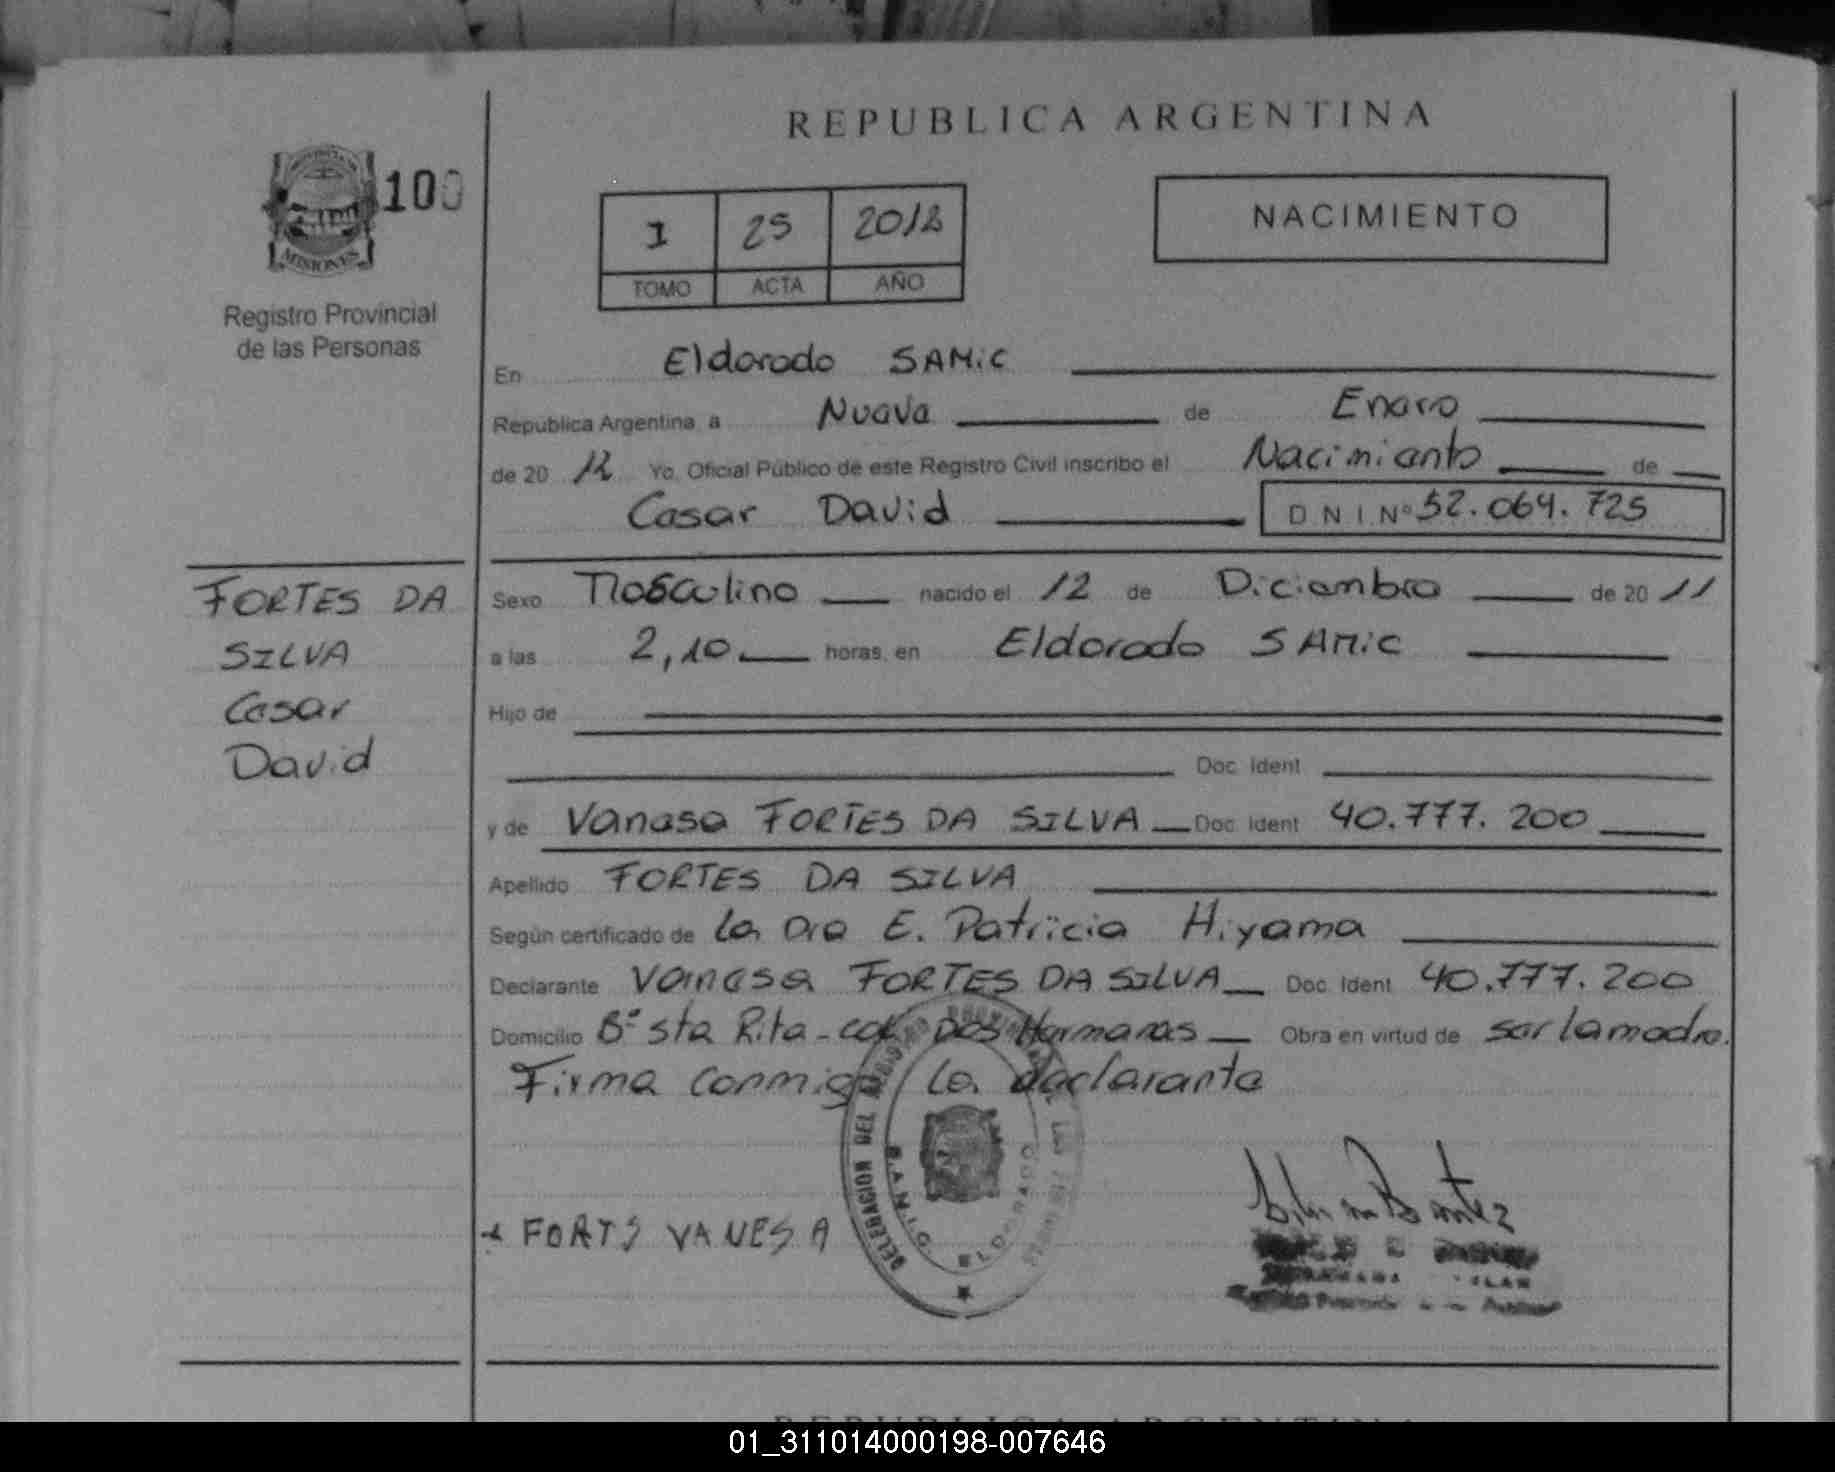 REPUBLICA ARGENTINA
PROVINCIA DE
MISIONES
100
Registro Provincial
de las Personas
I 25 2012
TOMO ACTA AÑO
NACIMIENTO
En Eldorado SAMIC
Republica Argentina, a Nueve de Enero
de 20 12 Yo, Oficial Público de este Registro Civil inscribo el Nacimiento de
Cesar David D N I Nº 52.064.725
FORTES DA
SILVA
Cesar
David
Sexo Masculino nacido el 12 de Diciembre de 20 11
a las 2,10 horas, en Eldorado SAMIC
Hijo de
Doc. Ident.
y de Vanesa FORTES DA SILVA Doc. Ident. 40.777.200
Apellido FORTES DA SILVA
Según certificado de La Dra E. Patricia Hiyama
Declarante Vanesa FORTES DA SILVA Doc. Ident. 40.777.200
Domicilio Bº Sta Rita - Dos Hermanas Obra en virtud de ser la madre.
Firma conmigo la declarante
DELEGACION DEL REGISTRO PROVINCIAL DE LAS PERSONAS
S.A.M.I.C. ELDORADO
FORTS VANESA
REPUBLICA ARGENTINA
01_311014000198-007646